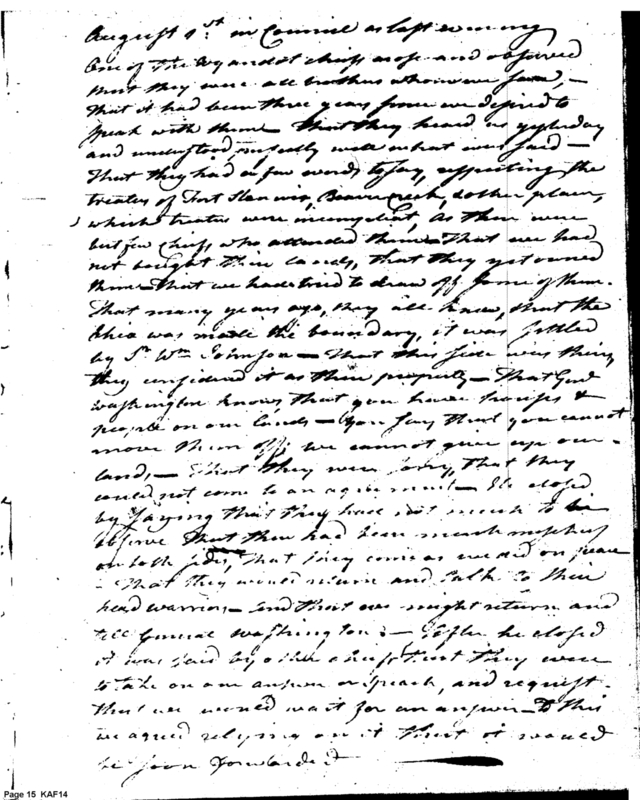 August 1st. in Council as last evening
One of the Wyandot chiefs arose and observed
that they were all brothers whom we saw, –
That it had been three years since we desired to
speak with them – That they heard us yesterday
and understood perfectly well what was said –
That they had a few words to say, respecting the
treaties of Fort Stanwix, Beaver creek, & other places,
which treaties were incomplete, as there were
but few chiefs who attended them – That we had
not bought their lands, that they yet owned
them – that we had tried to draw off some of them.
That many years ago, they all knew, that the
Ohio was made the boundary, it was settled
by Sr. Wm. Johnson – That this side was theirs,
they considered it as their property – That Genl
Washington knows that you have troops &
people on our lands – You say that you cannot
move them off; we cannot give up our
land, – That they were sorry, that they
could not come to an agreement – He closed
by saying that they had not much to
observe That there had been much mischief
on both sides, That they came as we did on peace
– That they would return and talk to their
head warriors – and that we might return and
tell General Washington : – After he closed
it was said by other chiefs that they were
to take on our answer or speech, and request
that we would wait for an answer – To this
we agreed relying on it that it would
be soon forwarded –
Page 15 KAF14